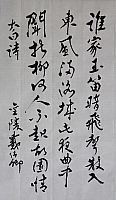 誰家玉笛暗飛聲散入
東風滿洛城此夜曲中
聞折柳何人不起故園情
太白詩
金陵戴